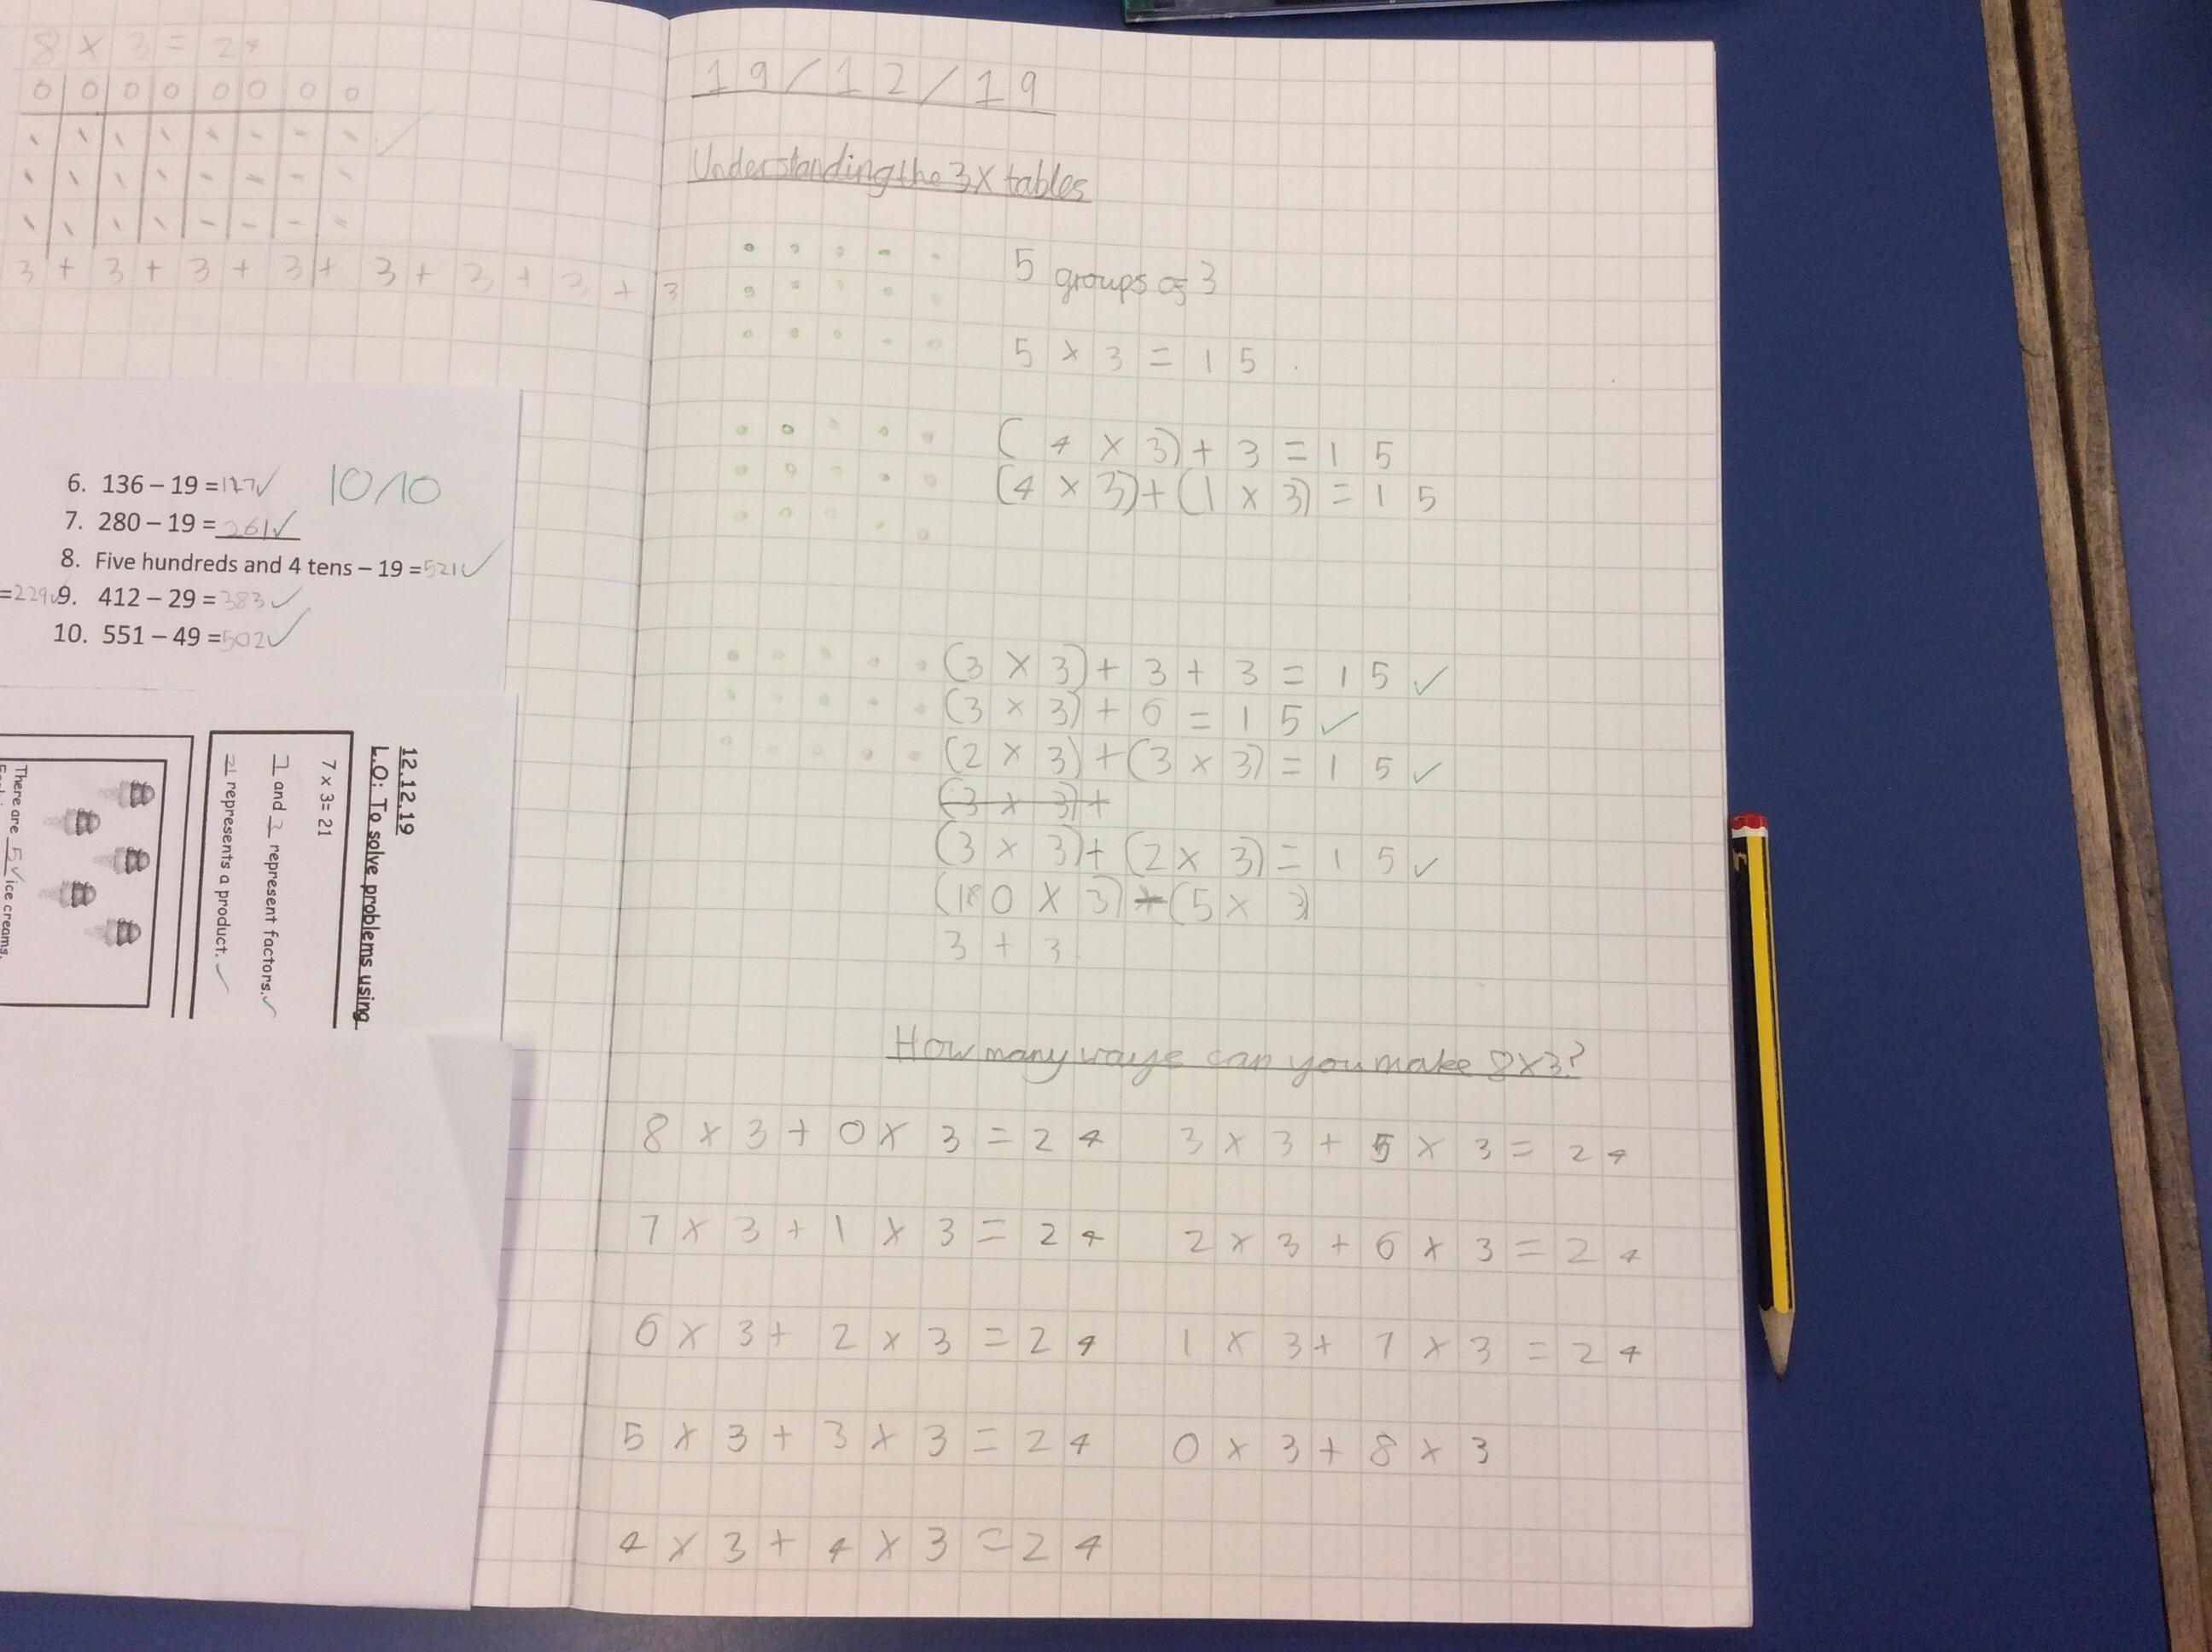 8 × 3 = 24
0 0 0 0 0 0 0 0
3 + 3 + 3 + 3 + 3 + 3 + 3 + 3
6. 136 – 19 = 117
10/10
7. 280 – 19 = 261
8. Five hundreds and 4 tens – 19 = 521
= 229
9. 412 – 29 = 383
10. 551 – 49 = 502
12.12.19
L.O: To solve problems using
7 x 3 = 21
7 and 3 represent factors.
21 represents a product.
There are 5 ice creams.
19/12/19
Understanding the 3x tables
5 groups of 3
5 × 3 = 15.
(4 × 3) + 3 = 15
(4 × 3) + (1 × 3) = 15
(3 × 3) + 3 + 3 = 15
(3 × 3) + 6 = 15
(2 × 3) + (3 × 3) = 15
(3 × 3) +
(3 × 3) + (2 × 3) = 15
3 + 3
How many ways can you make 8x3?
8 × 3 + 0 × 3 = 24
3 × 3 + 5 × 3 = 24
7 × 3 + 1 × 3 = 24
2 × 3 + 6 × 3 = 24
6 × 3 + 2 × 3 = 24
1 × 3 + 7 × 3 = 24
5 × 3 + 3 × 3 = 24
0 × 3 + 8 × 3
4 × 3 + 4 × 3 = 24